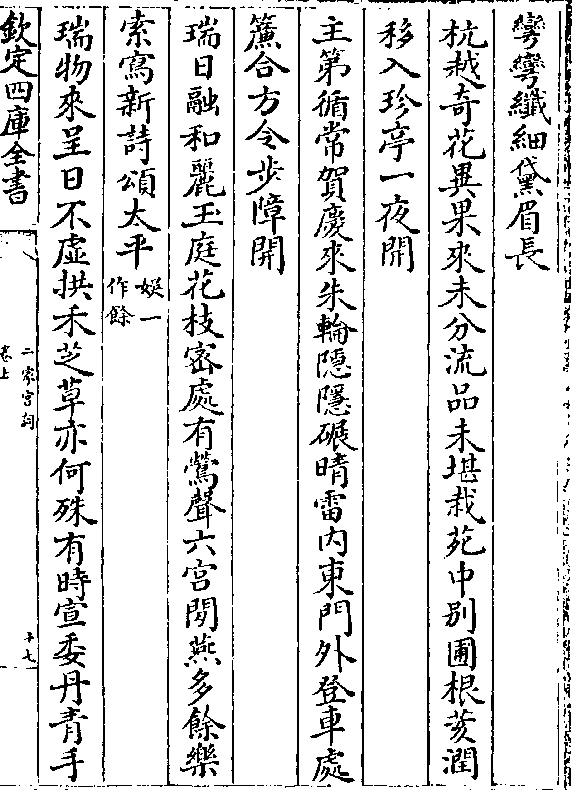 彎彎纖細黛眉長
杭越奇花異果來未分流品未堪栽苑中别圃根荄潤
移入珍亭一夜開
主第循常賀慶來朱輪隱隱碾晴雷内東門外登車處
簾合方令步障開
瑞日融和麗玉庭花枝密處有鶯聲六宫閲燕多餘樂
索寫新詩頌太平
娱一
作餘
瑞物來呈日不虚拱禾芝草亦何殊有時宣委丹青手
欽定四庫全書
二家宫詞
卷上
十七